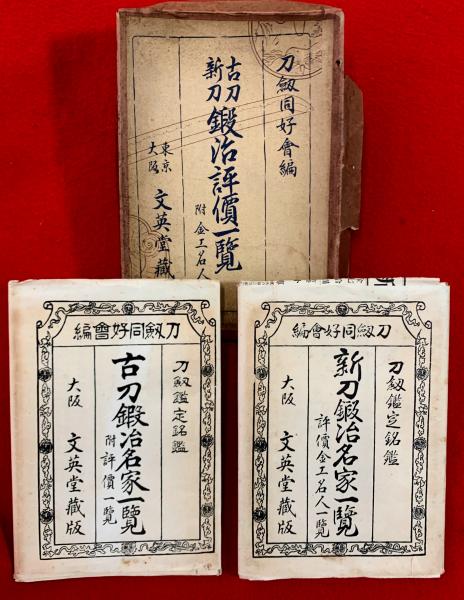 刀劔同好會編
古刀
新刀
鍛冶評價一覽
附金工名人
東京
大阪
文英堂藏
刀劔同好會編
刀劔鑑定銘鑑
古刀鍛冶名家一覽
附評價一覽
大阪 文英堂藏版
刀劔同好會編
刀劔鑑定銘鑑
新刀鍛冶名家一覽
評價金工名人一覽
大阪 文英堂藏版